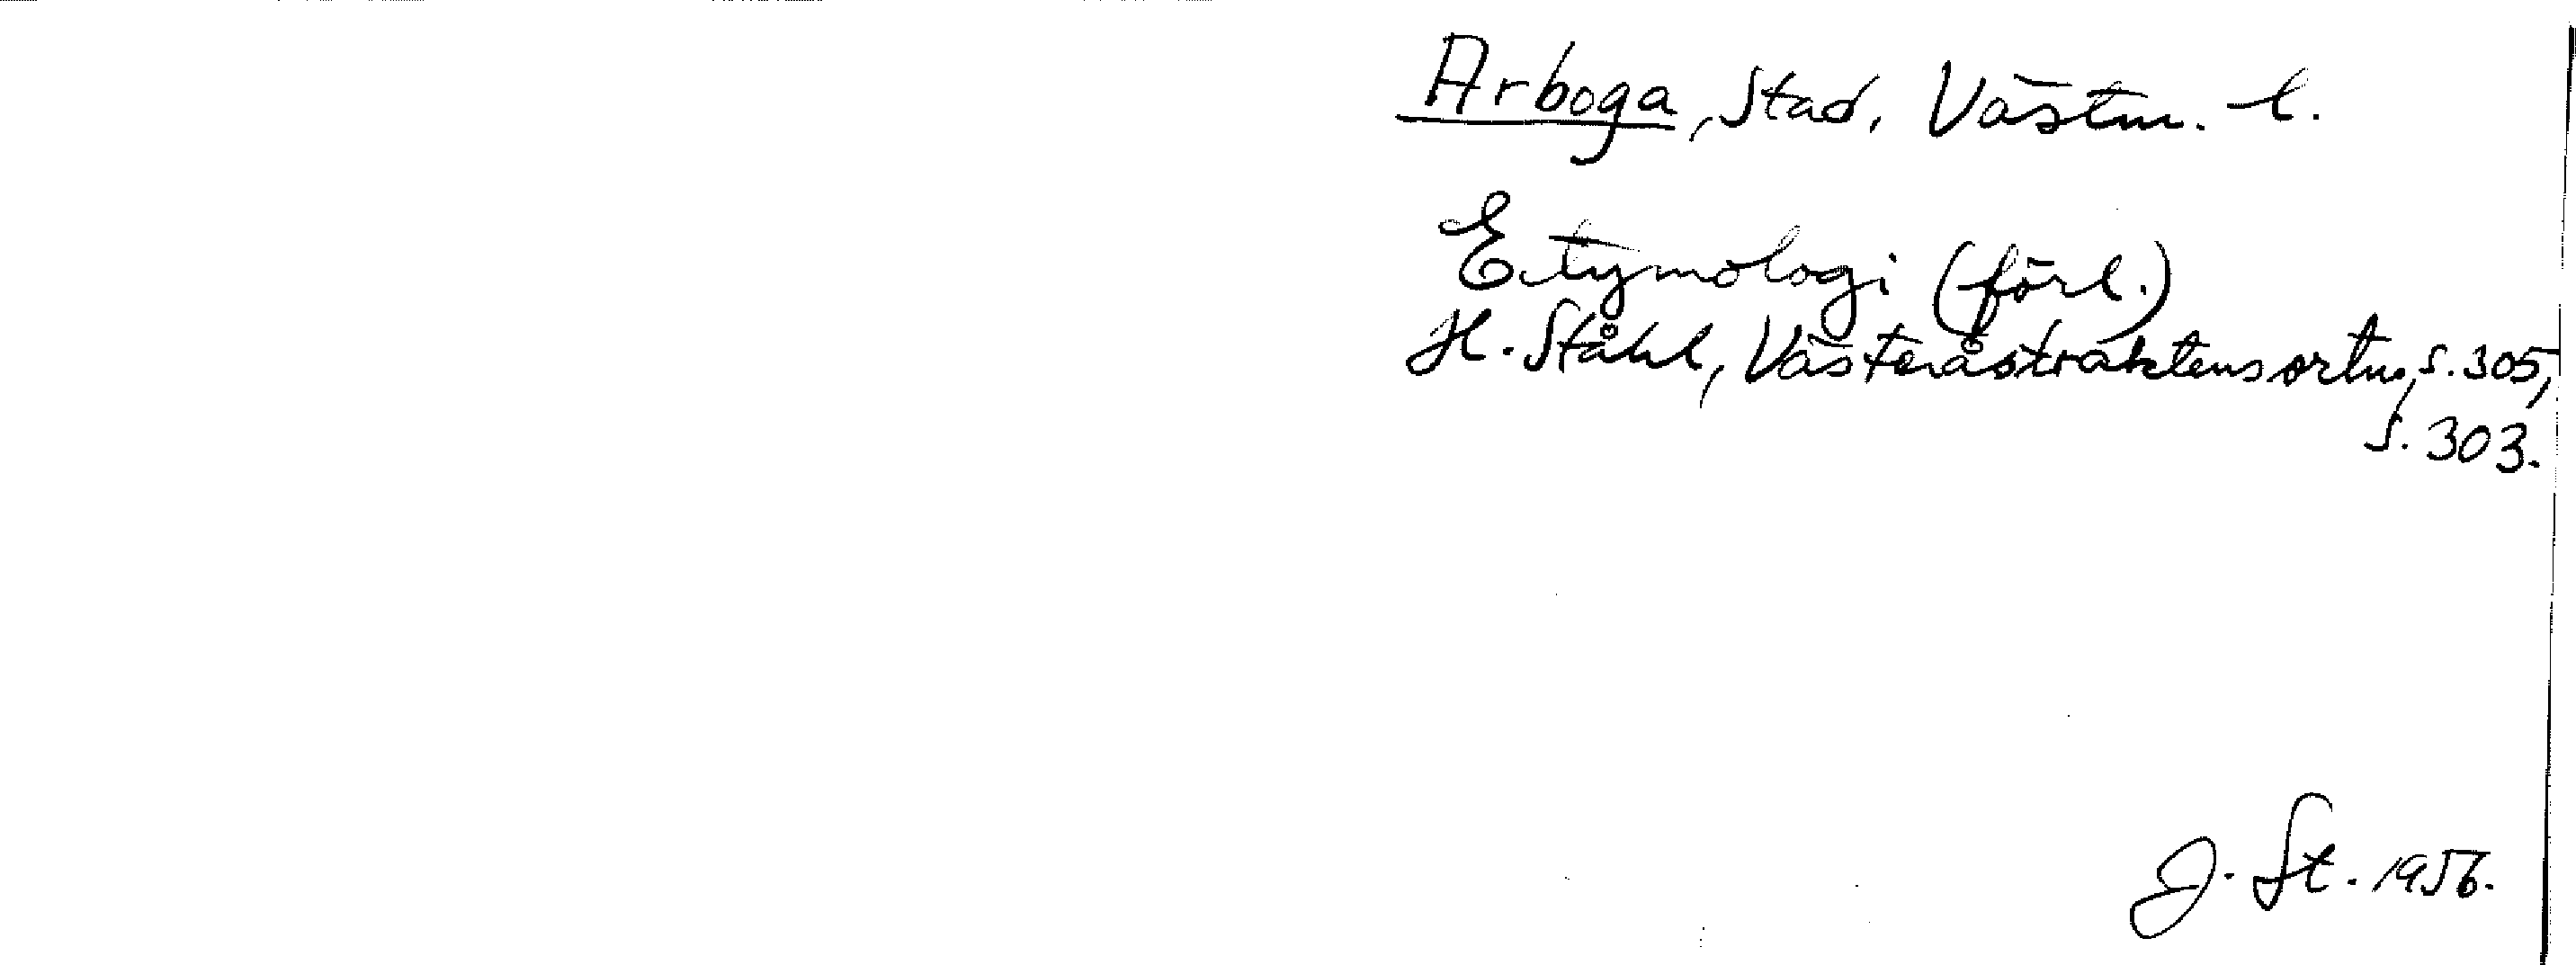 Arboga, stad, Västm. l.
Etymologi (förl.)
H. Ståhl, Västeråstraktens ortn., s. 305,
s. 303.
J. St. 1956.